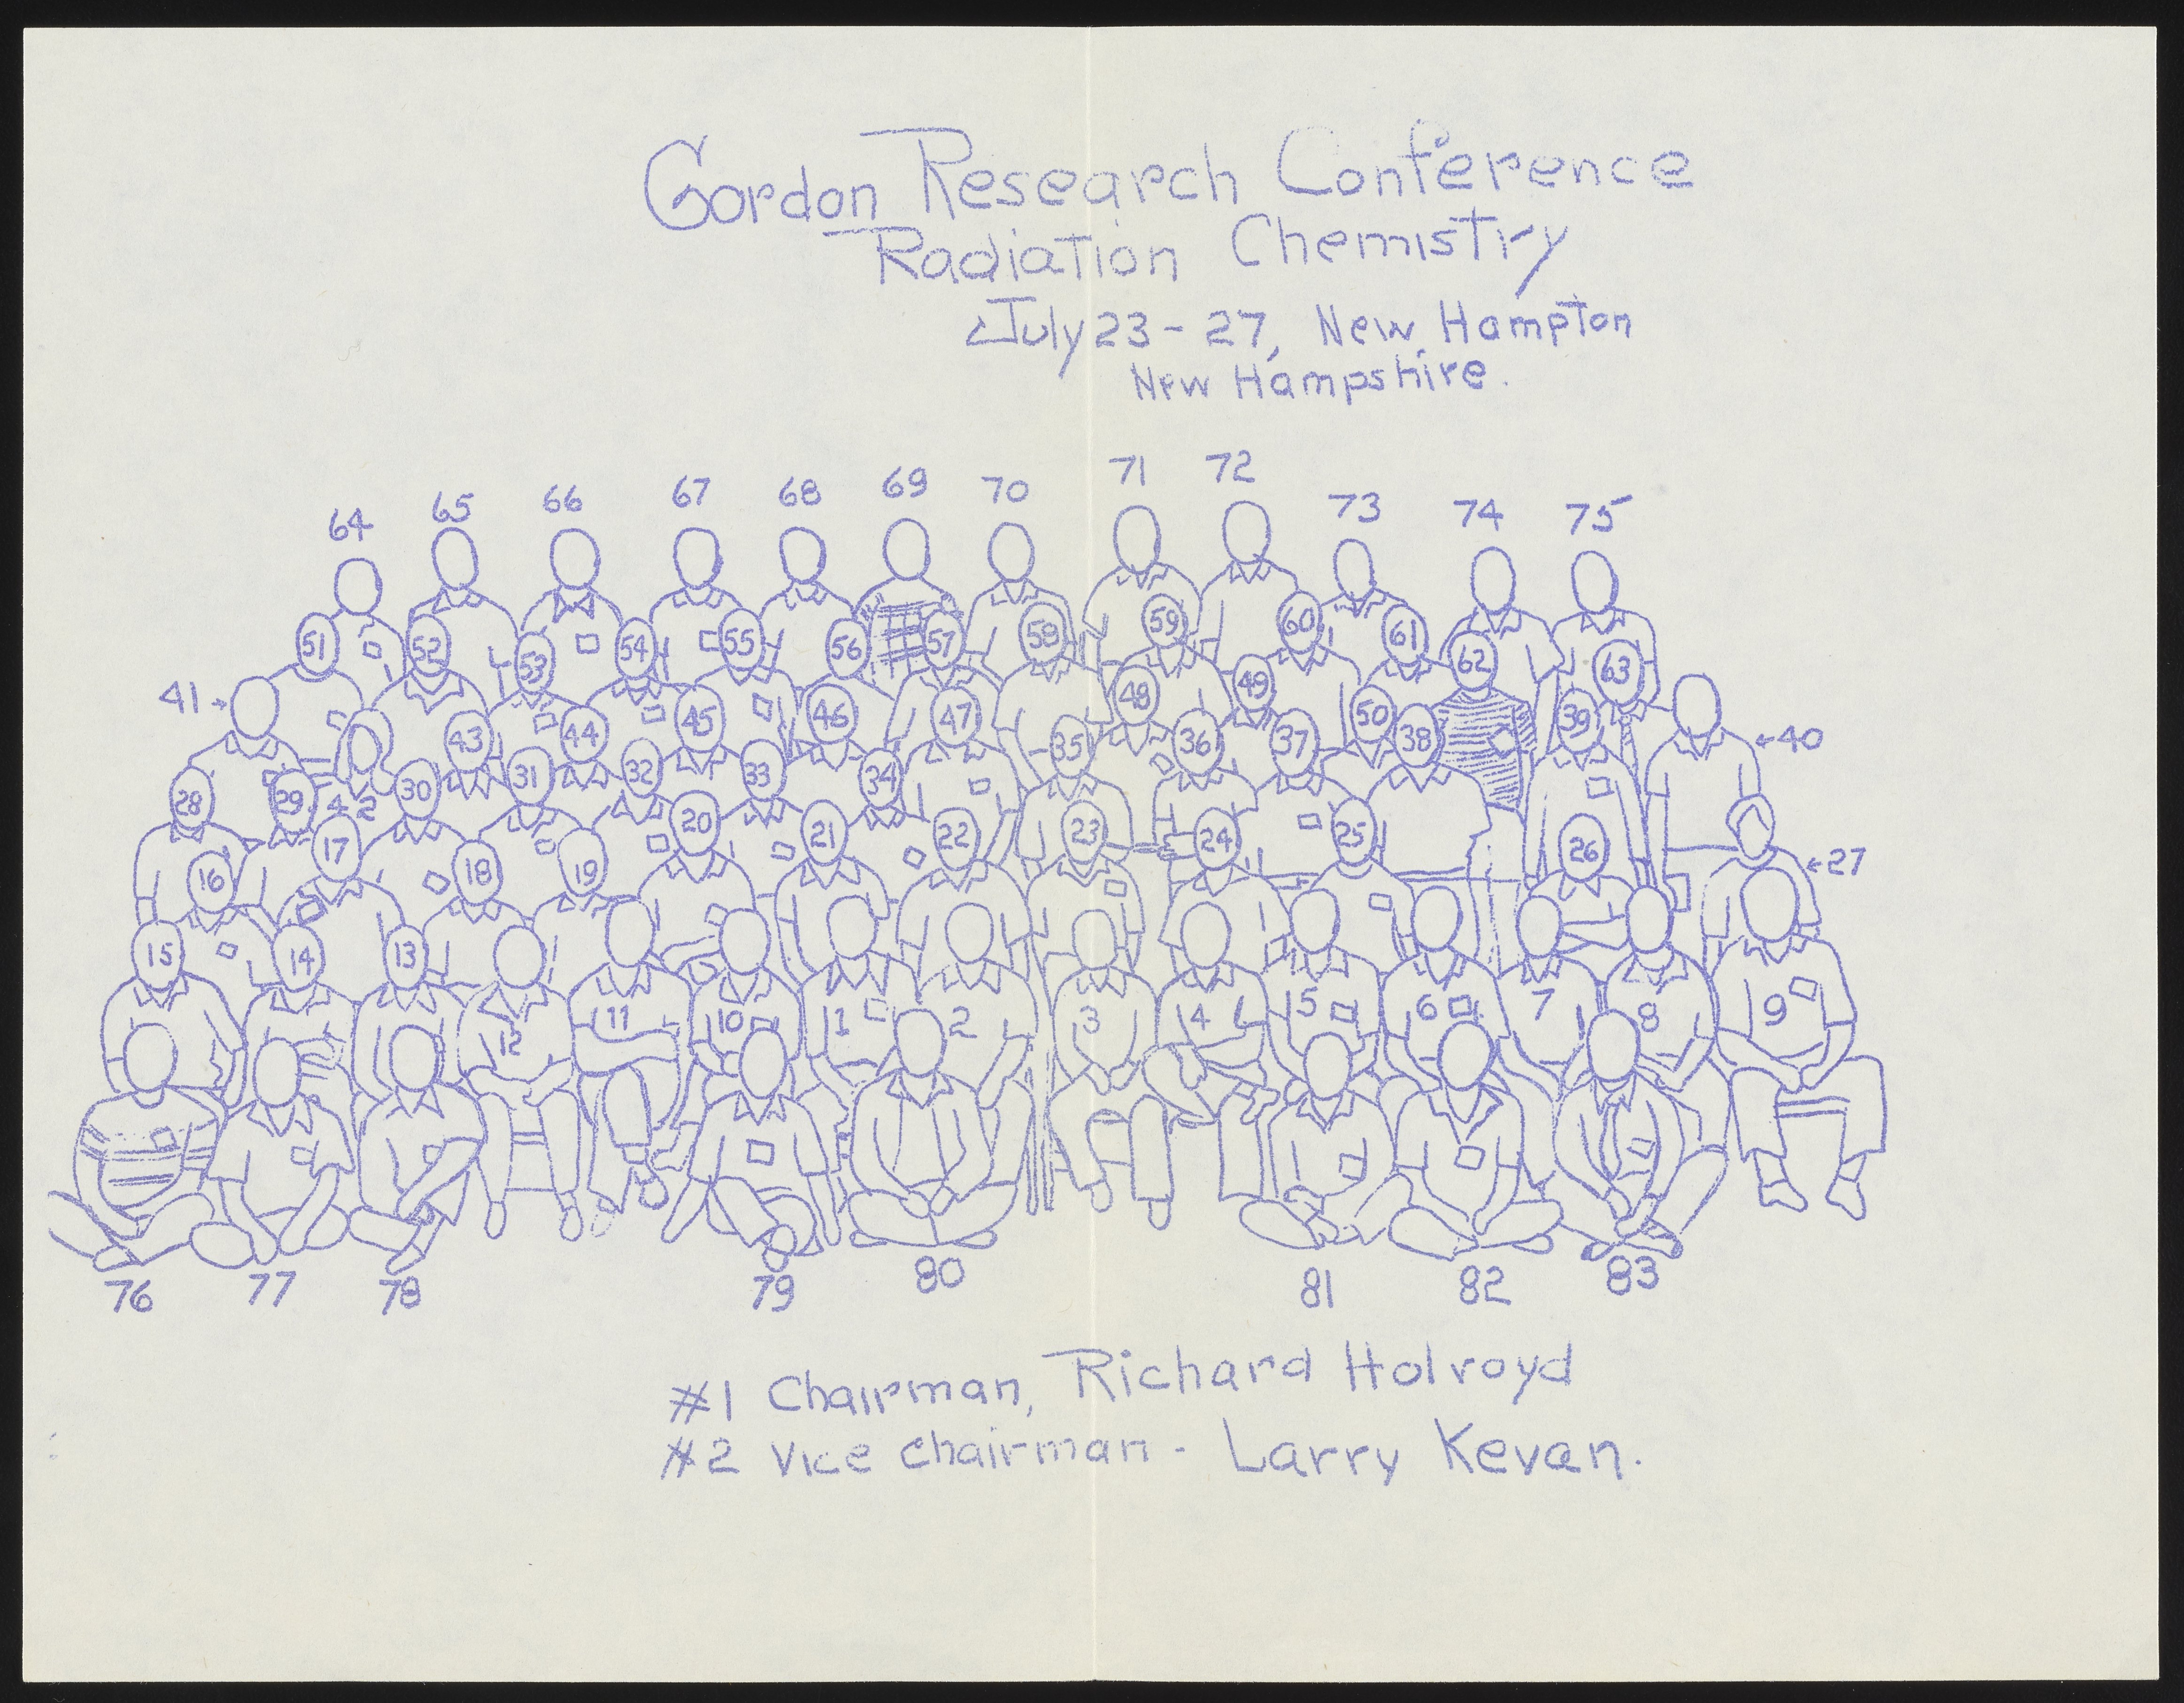 Gordon Research Conference
Radiation Chemistry
July 23 - 27, New Hampton
New Hampshire.
71 72
64 65 66 67 68 69 70 73 74 75
51 52 53 54 55 56 57 58 59 60 61 62 63
41 43 44 45 46 47 48 49 50
28 29 42 30 31 32 33 34 35 36 37 38 39 40
16 17 18 19 20 21 22 23 24 25 26 27
15 14 13
12 11 10 1 2 3 4 5 6 7 8 9
76 77 78 79 80 81 82 83
#1 Chairman, Richard Holroyd
#2 Vice chairman - Larry Kevan.